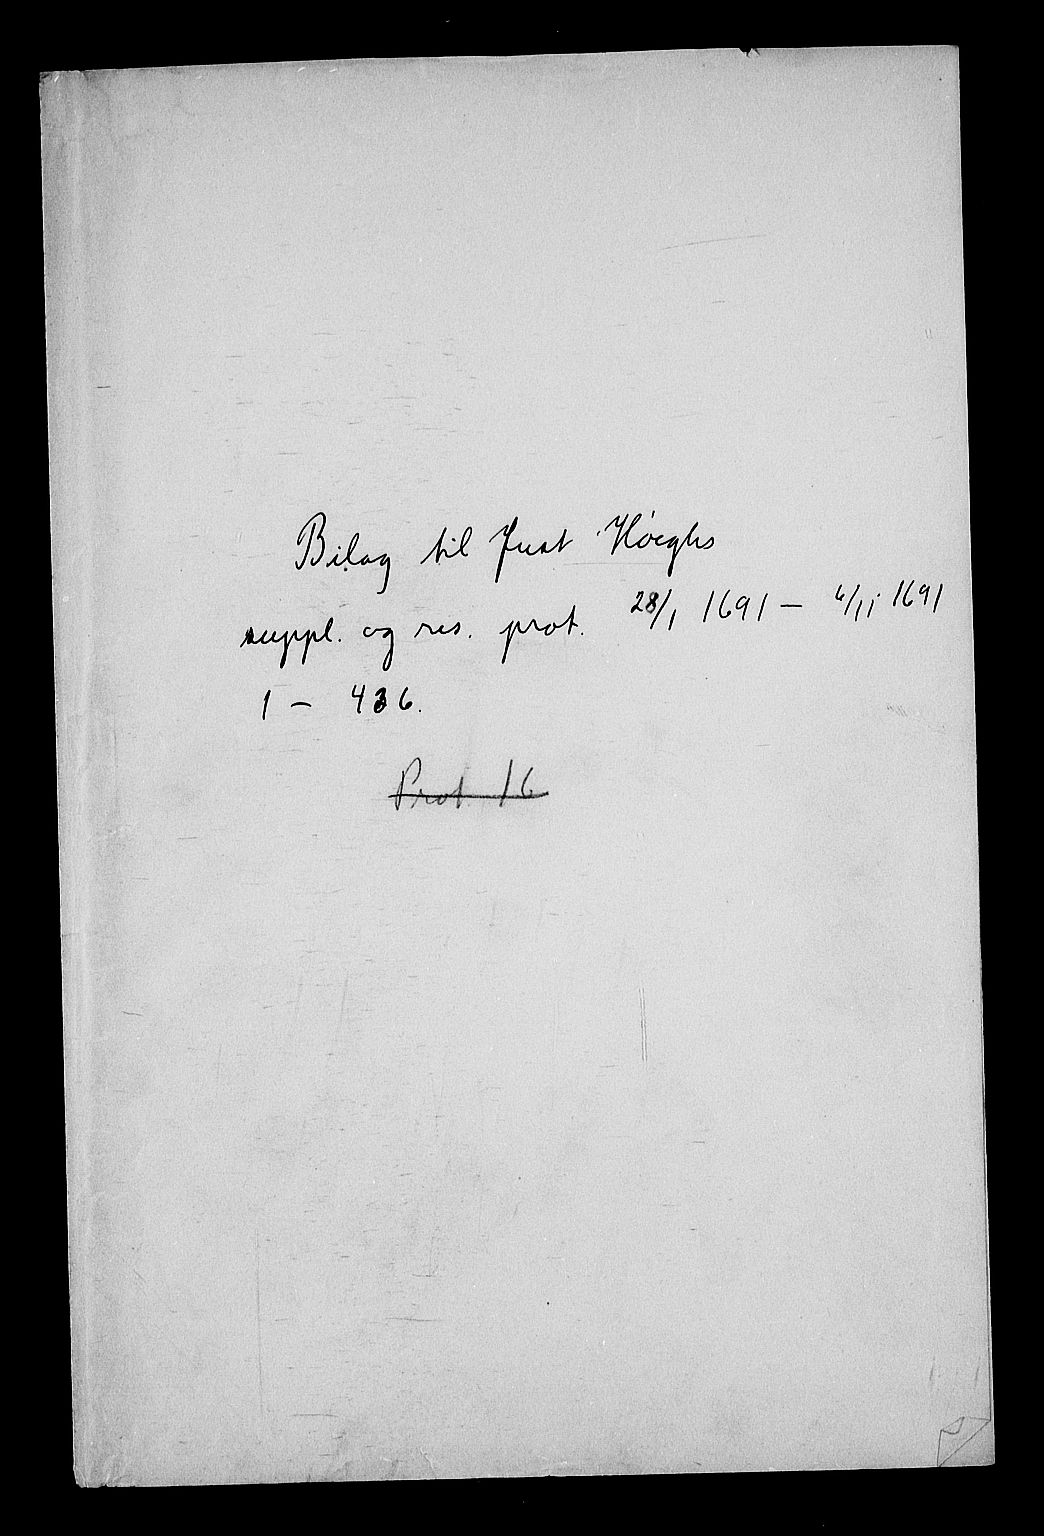 Bilag til Just Høeghs
suppl. og res. prot. 28/1 1691 – 6/11 1691
1 – 436.
Prot 16